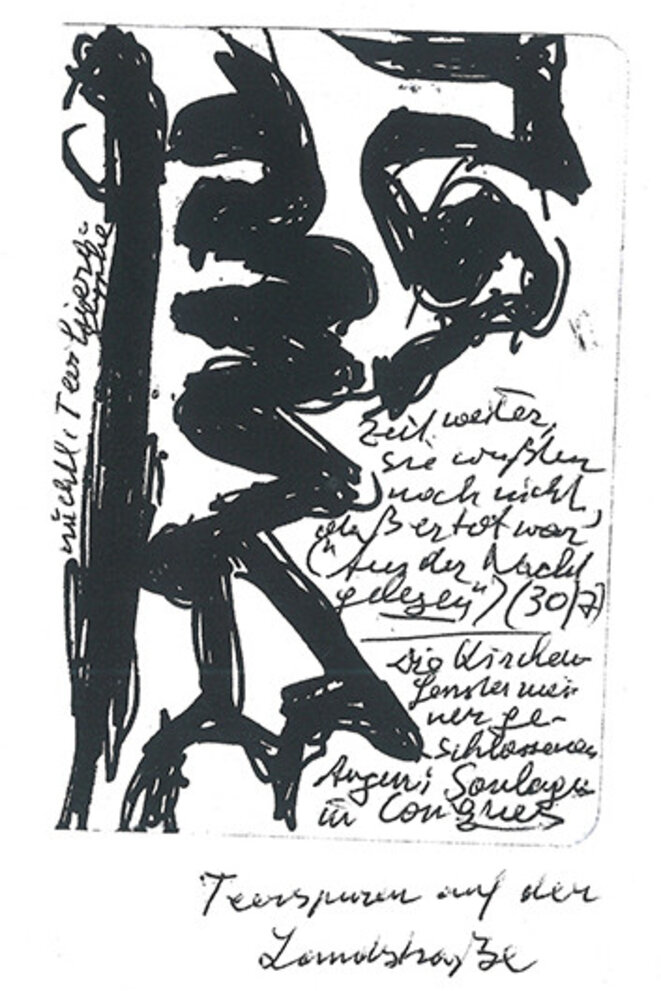 nächtl. Teer
zeit weiter,
sie wußten
noch nicht,
daß er tot war"
("Aus der Nacht
gelesen") (30/7)
die Kirchen-
fenster mei-
ner ge-
schlossenen
Augen: Soulages
in Conques
Teerspuren auf der
Landstraße